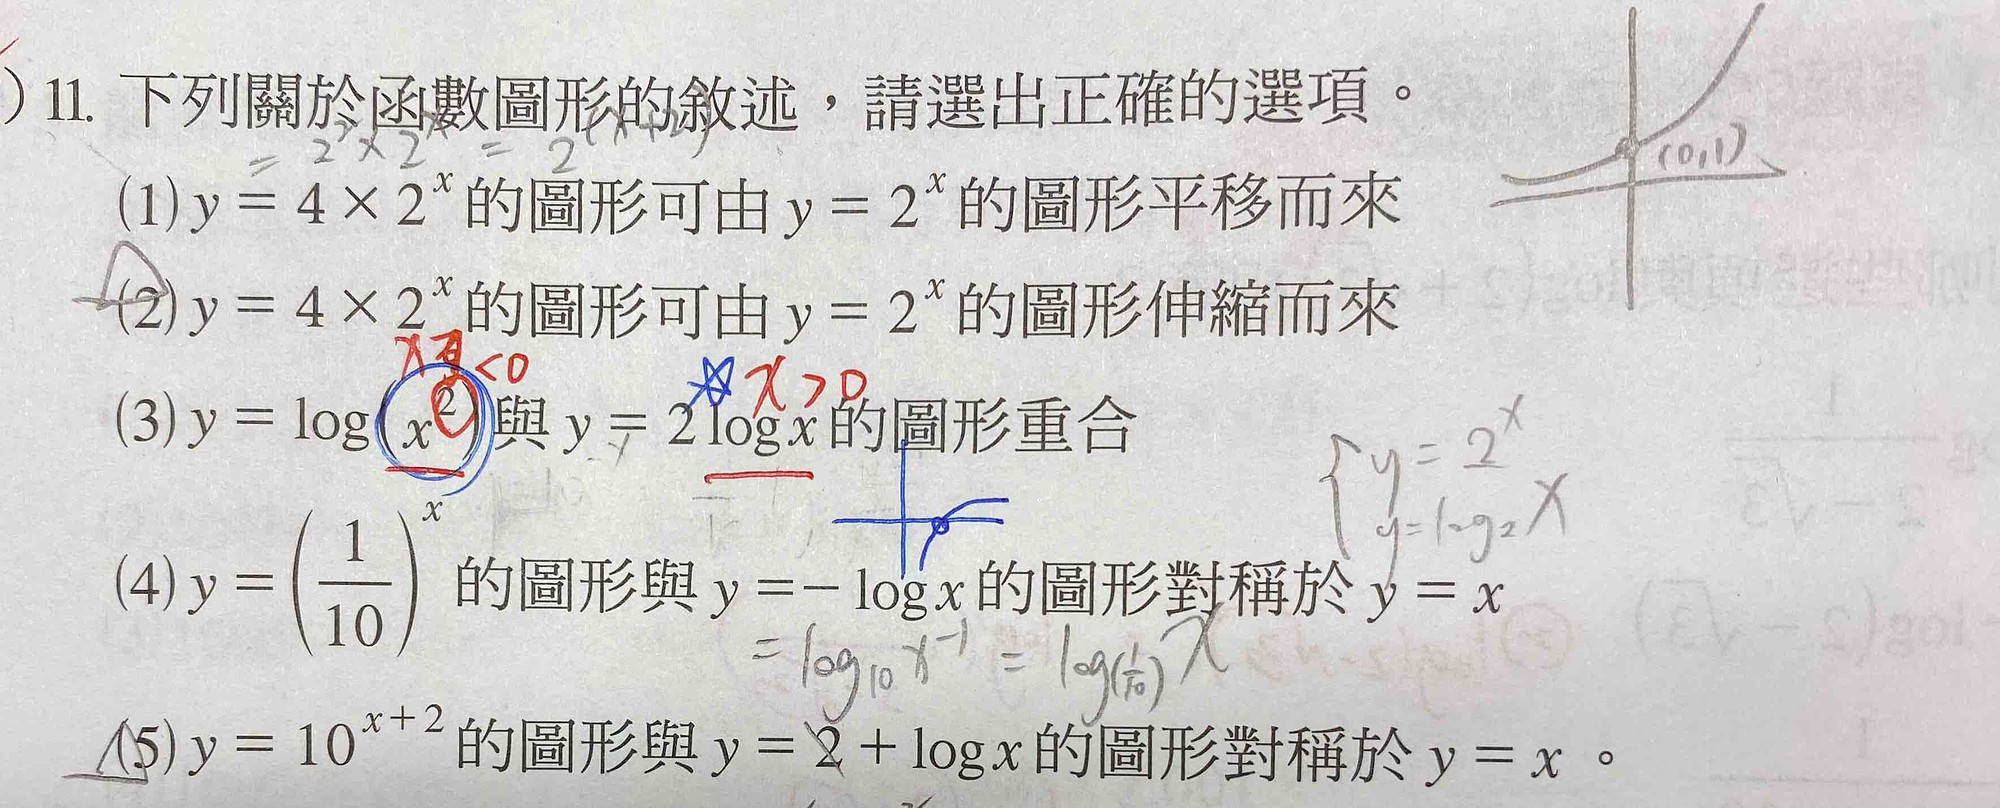 ) 11. 下列關於函數圖形的敘述，請選出正確的選項。
= 2² × 2ˣ = 2^(x+2)
(0,1)
(1) y = 4 × 2ˣ 的圖形可由 y = 2ˣ 的圖形平移而來
(2) y = 4 × 2ˣ 的圖形可由 y = 2ˣ 的圖形伸縮而來
x可<0
☆ x>0
(3) y = log(x²) 與 y = 2 log x 的圖形重合
{ y = 2ˣ
y = log₂ x
(4) y = (1/10)ˣ 的圖形與 y = − log x 的圖形對稱於 y = x
= log₁₀ x⁻¹ = log_(1/10) x
(5) y = 10^(x+2) 的圖形與 y = 2 + log x 的圖形對稱於 y = x 。